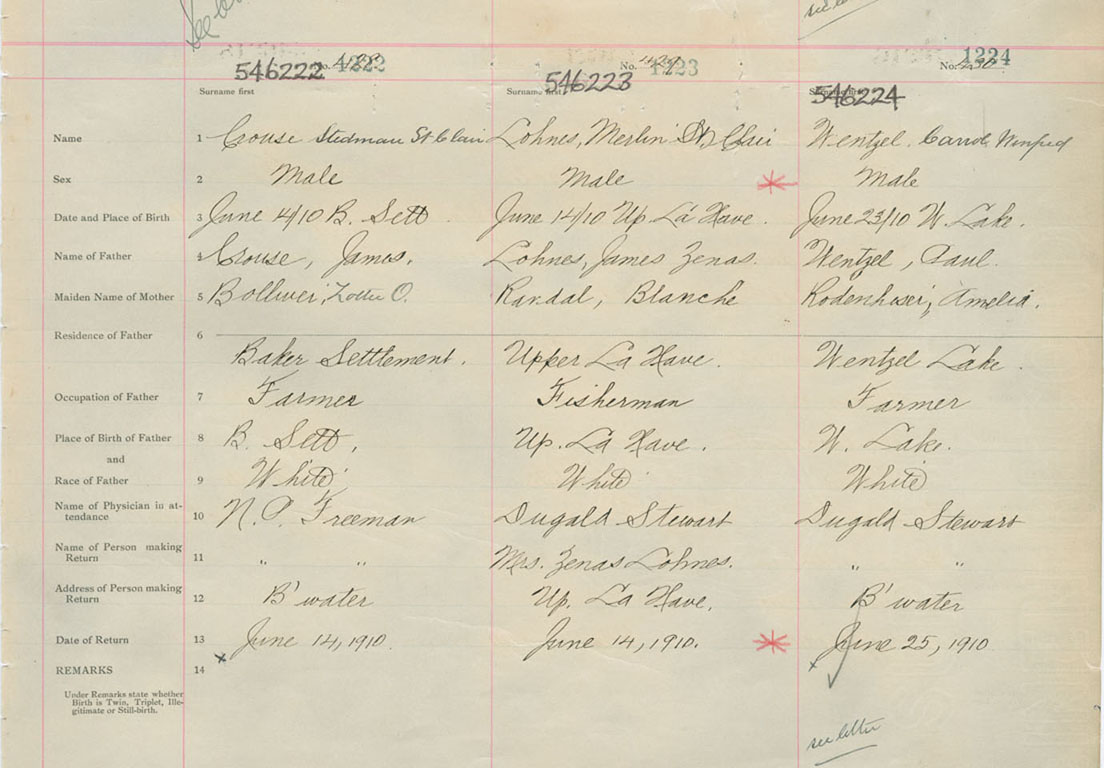 see letter
546222 No. 1222 546223 No. 1223 546224 No. 1224
Surname first Surname first Surname first
Name 1 Crouse Stedman St Clair Lohnes, Merlin St, Clair Wentzel, Winfred
Sex 2 Male Male Male
Date and Place of Birth 3 June 4/10 B. Sett June 14/10 Up La Have. June 23/10 W. Lake.
Name of Father 4 Crouse, James. Lohnes, James Zenas. Wentzel, Paul.
Maiden Name of Mother 5 Lottie O. Randal, Blanche Amelia.
Residence of Father 6
Baker Settlement. Upper La Have. Wentzel Lake.
Occupation of Father 7 Farmer Fisherman Farmer
Place of Birth of Father 8 B. Sett. Up. La Have. W. Lake.
and
Race of Father 9 White White White
Name of Physician in at-
tendance 10 Freeman Dugald Stewart Dugald Stewart
Name of Person making
Return 11 " " Mrs. Zenas Lohnes. " "
Address of Person making
Return 12 B'water Up. La Have. B'water
Date of Return 13 June 14, 1910. June 14, 1910. June 25, 1910
REMARKS 14
Under Remarks state whether
Birth is Twin, Triplet, Ille-
gitimate or Still-birth.
see letter